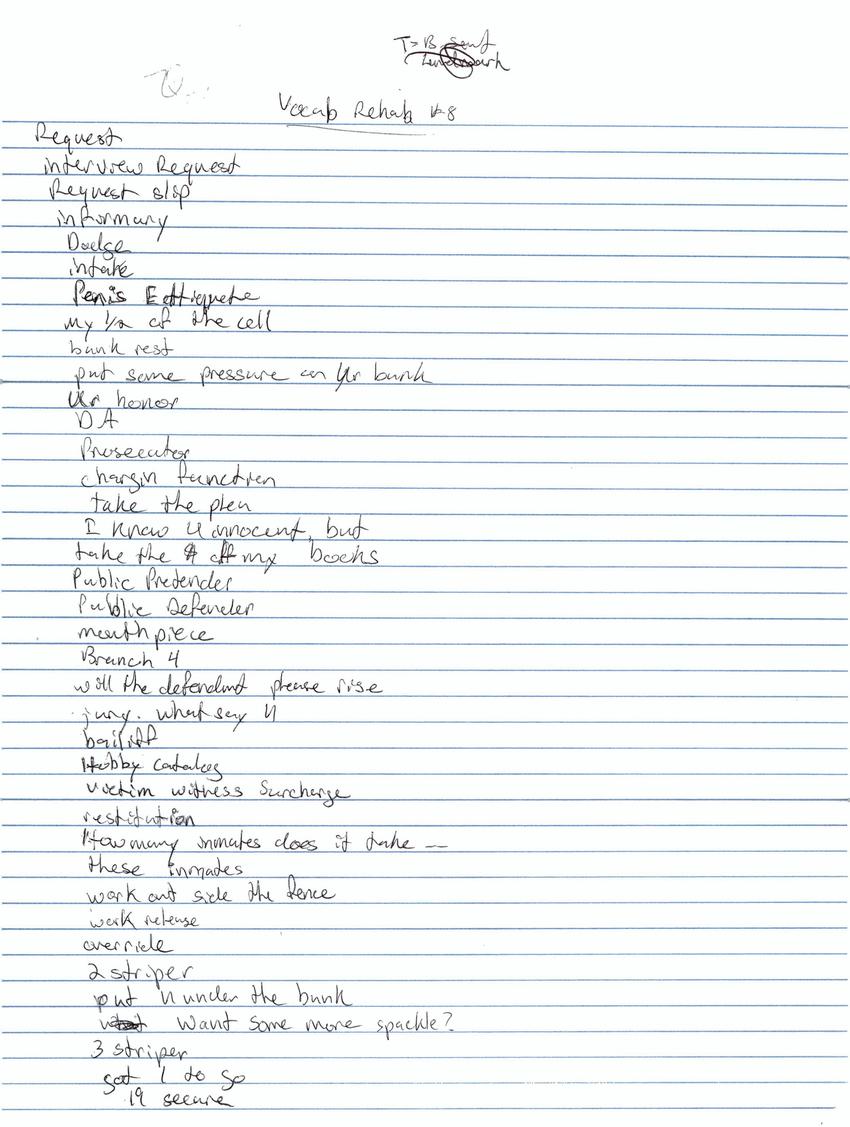 T > B sent
Landmark
Vocab Rehab V-8
Request
interview Request
Request slip
informary
Dodge
intake
Penis Ettiquete
my 1/2 of the cell
bunk rest
put some pressure on Ur bunk
Ur honor
DA
Prosecutor
chargin function
take the plea
I know U innocent, but
take the $ off my books
Public Pretender
Public Defender
mouthpiece
Branch 4
will the defendant please rise
jury. what say U
bailiff
Hobby Catalog
Victim witness Surcharge
restitution
How many inmates does it take —
these inmates
work out side the fence
work release
override
2 striper
put U under the bunk
Want some more spackle?
3 striper
got 1 to go
19 secure